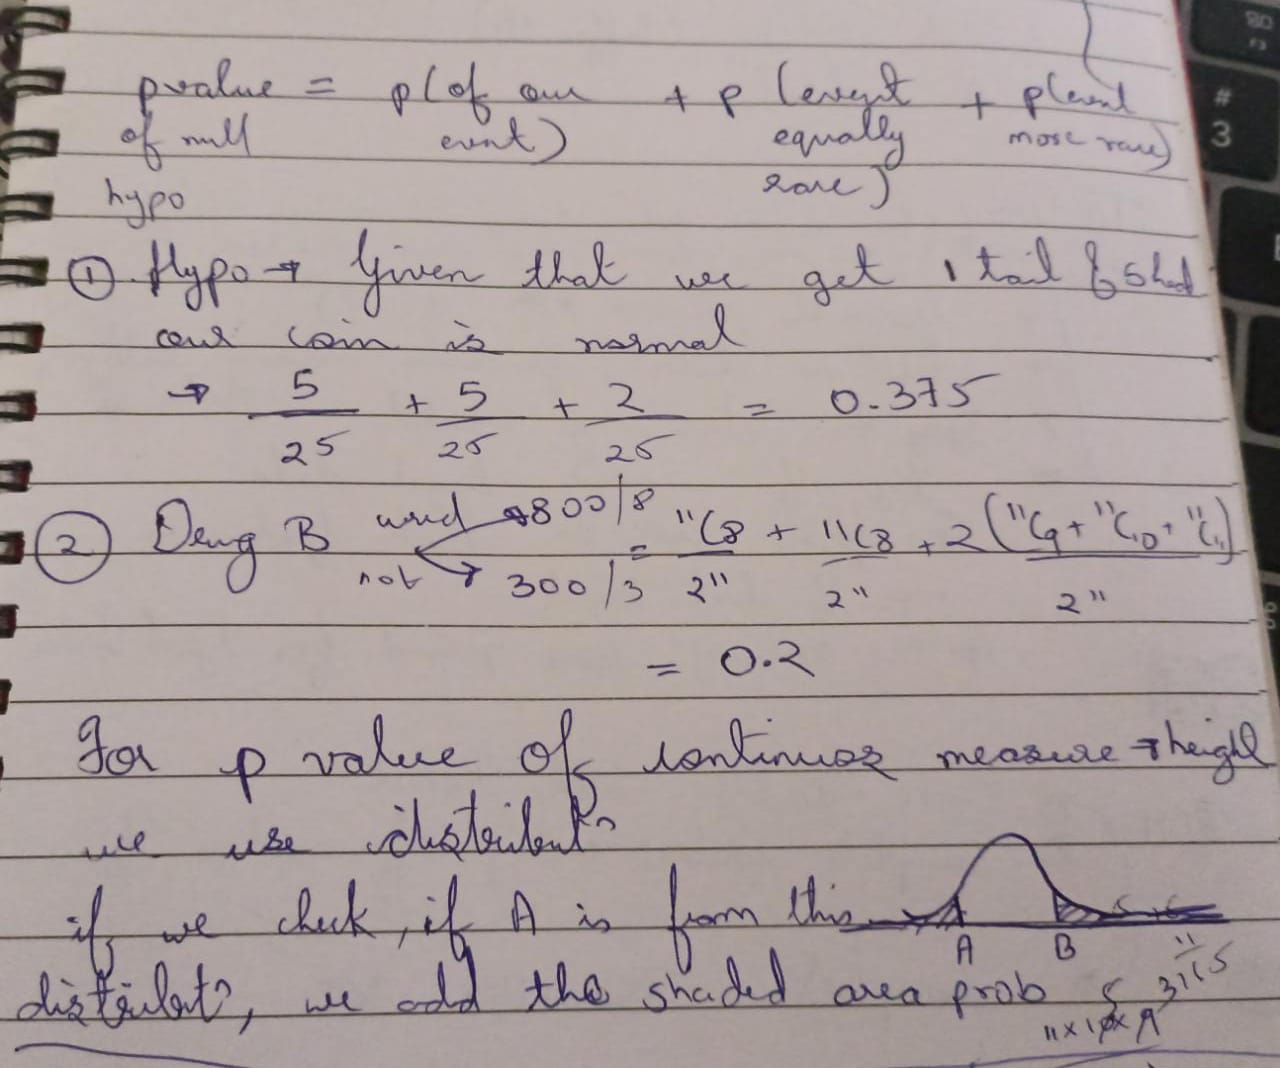 pvalue = p(of our + p (event + p(event
of null event) equally more rare)
hypo rare)
① Hypo → Given that we get 1 tail & 5 head
our coin is normal
→ 5/25 + 5/25 + 2/25 = 0.375
② Drug B word → 800/8 = 11C8/2^11 + 11C8/2^11 + 2(11C9 + 11C10 + 11C11)/2^11
not → 300/3
= 0.2
For p value of continuos measure → height
we use distribut^n
if we check, if A is from this
A B
distribut^n, we add the shaded area prob